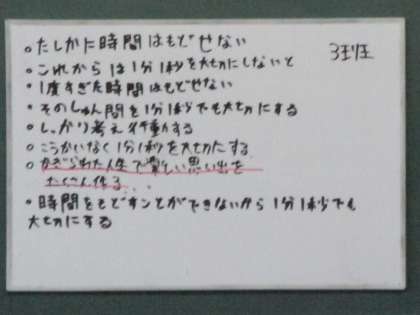 。たしかに時間はもどせない
3班
。これからは1分1秒を大切にしないと
・1度すぎた時間はもどせない
・そのしゅん間を1分1秒でも大切にする
。しっかり考え行動する
。こうかいなく1分1秒を大切にする
。かぎられた人生で楽しい思い出を
たくさん作る...
・時間をもどすことができないから1分1秒でも
大切にする